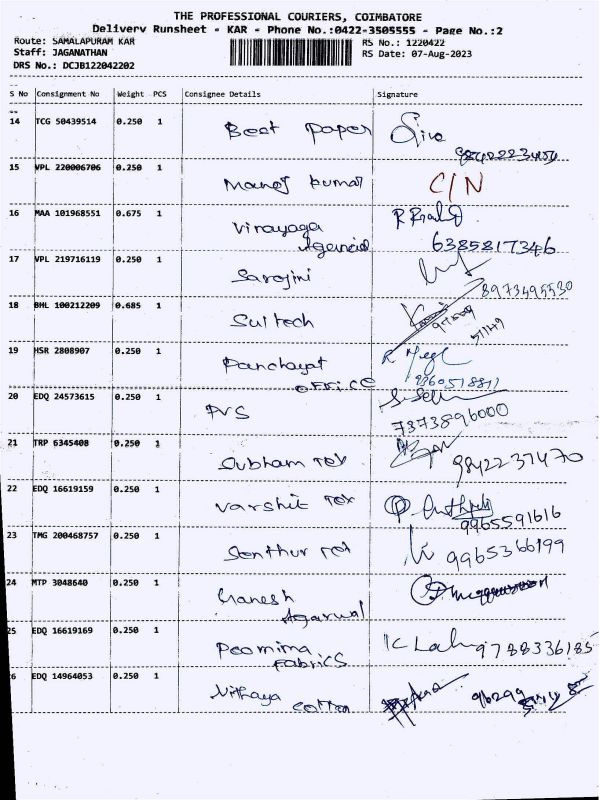 THE PROFESSIONAL COURIERS, COIMBATORE
Delivery Runsheet - KAR - Phone No.:0422-3505555 - Page No.:2
Route: SAMALAPURAM KAR
RS No.: 1220422
Staff: JAGANATHAN
RS Date: 07-Aug-2023
DRS No.: DCJB122042202
S No Consignment No Weight PCS Consignee Details Signature
14 TCG 50439514 0.250 1 Best Paper Siva
15 VPL 220006706 0.250 1 Manoj kumar C/N
16 MAA 101968551 0.675 1 Vinayaga
Agencies 6385817346
17 VPL 219716119 0.250 1 Sarojini
8973495530
18 BHL 100212209 0.685 1 Sultech
19 HSR 2808907 0.250 1 Panchayat
office 9360518811
20 EDQ 24573615 0.250 1 PVS
7373896000
21 TRP 6345408 0.250 1 Subham Tex 9842237470
22 EDQ 16619159 0.250 1 Varshit Tex
9965591616
23 TMG 200468757 0.250 1 Senthur Tex 9965366199
24 MTP 3048640 0.250 1 Ganesh
Agarwal
25 EDQ 16619169 0.250 1 Poornima 9788336185
Fabrics
26 EDQ 14964053 0.250 1 Nithaya
cotton